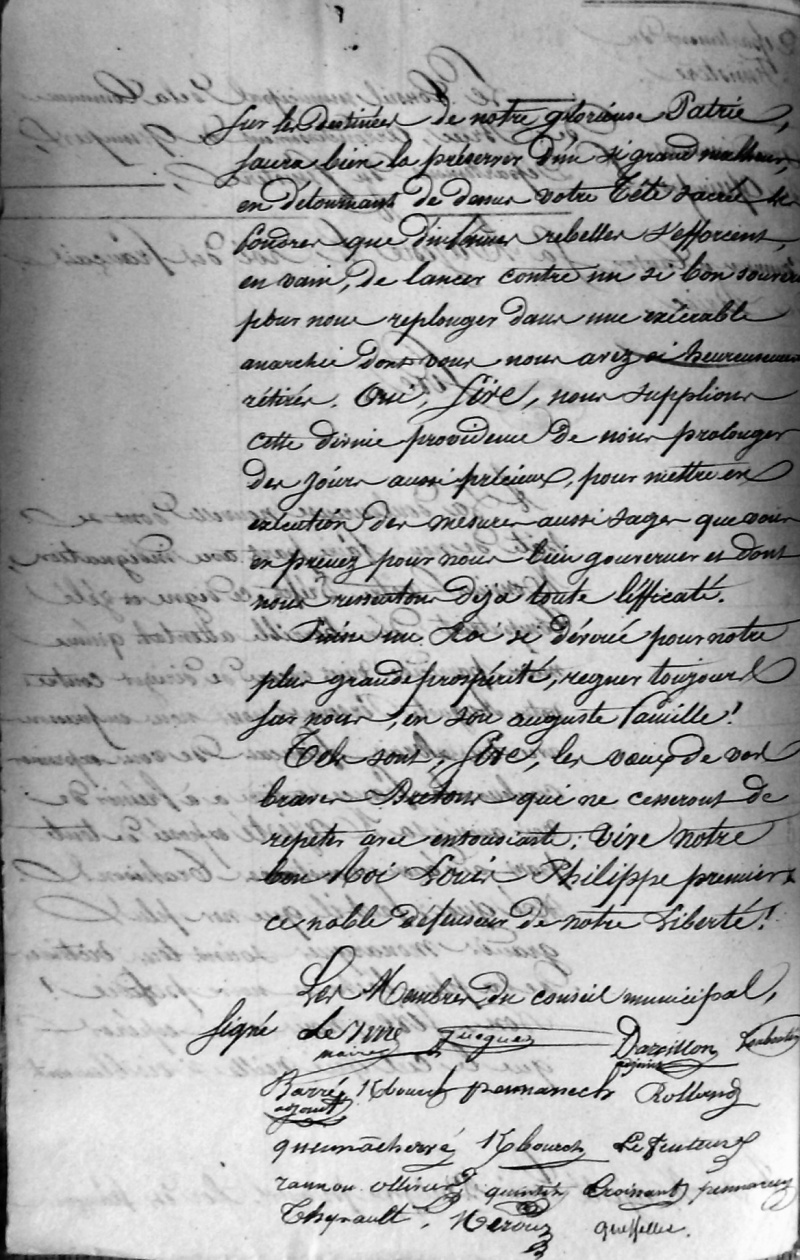 sur les destinées de notre glorieuse Patrie,
saura bien la préserver d'un si grand malheur,
en détournant de dessus votre Tête sacrée les
foudres que d'infames rebelles s'efforcent,
en vain, de lancer contre un si bon souverain
pour nous replonger dans une exécrable
anarchie dont vous nous avez si heureusement
rétirés. Oui, Sire, nous supplions
cette divine providence de nous prolonger
des jours aussi précieux, pour mettre en
exécution des mesures aussi sages que vous
en prenez pour nous bien gouverner et dont
nous ressentons deja toute l'efficaté.
Puisse un Roi si dévoué pour notre
plus grande prospérité, regner toujours
sur nous, en son auguste famille!
Tels sont, Sire, les vœux de vos
braves Bretons qui ne cesseront de
repeter avec entousiaste; vive notre
bon Roi Louis Philippe premier
ce noble défenseur de notre Liberté!
Les Membres du conseil municipal,
Signé Le
maire
Darillon
adjoint
Barré pennanech Rolland
adjoint
quemachervé
rannou ollivier quintin Croissant
Theynault